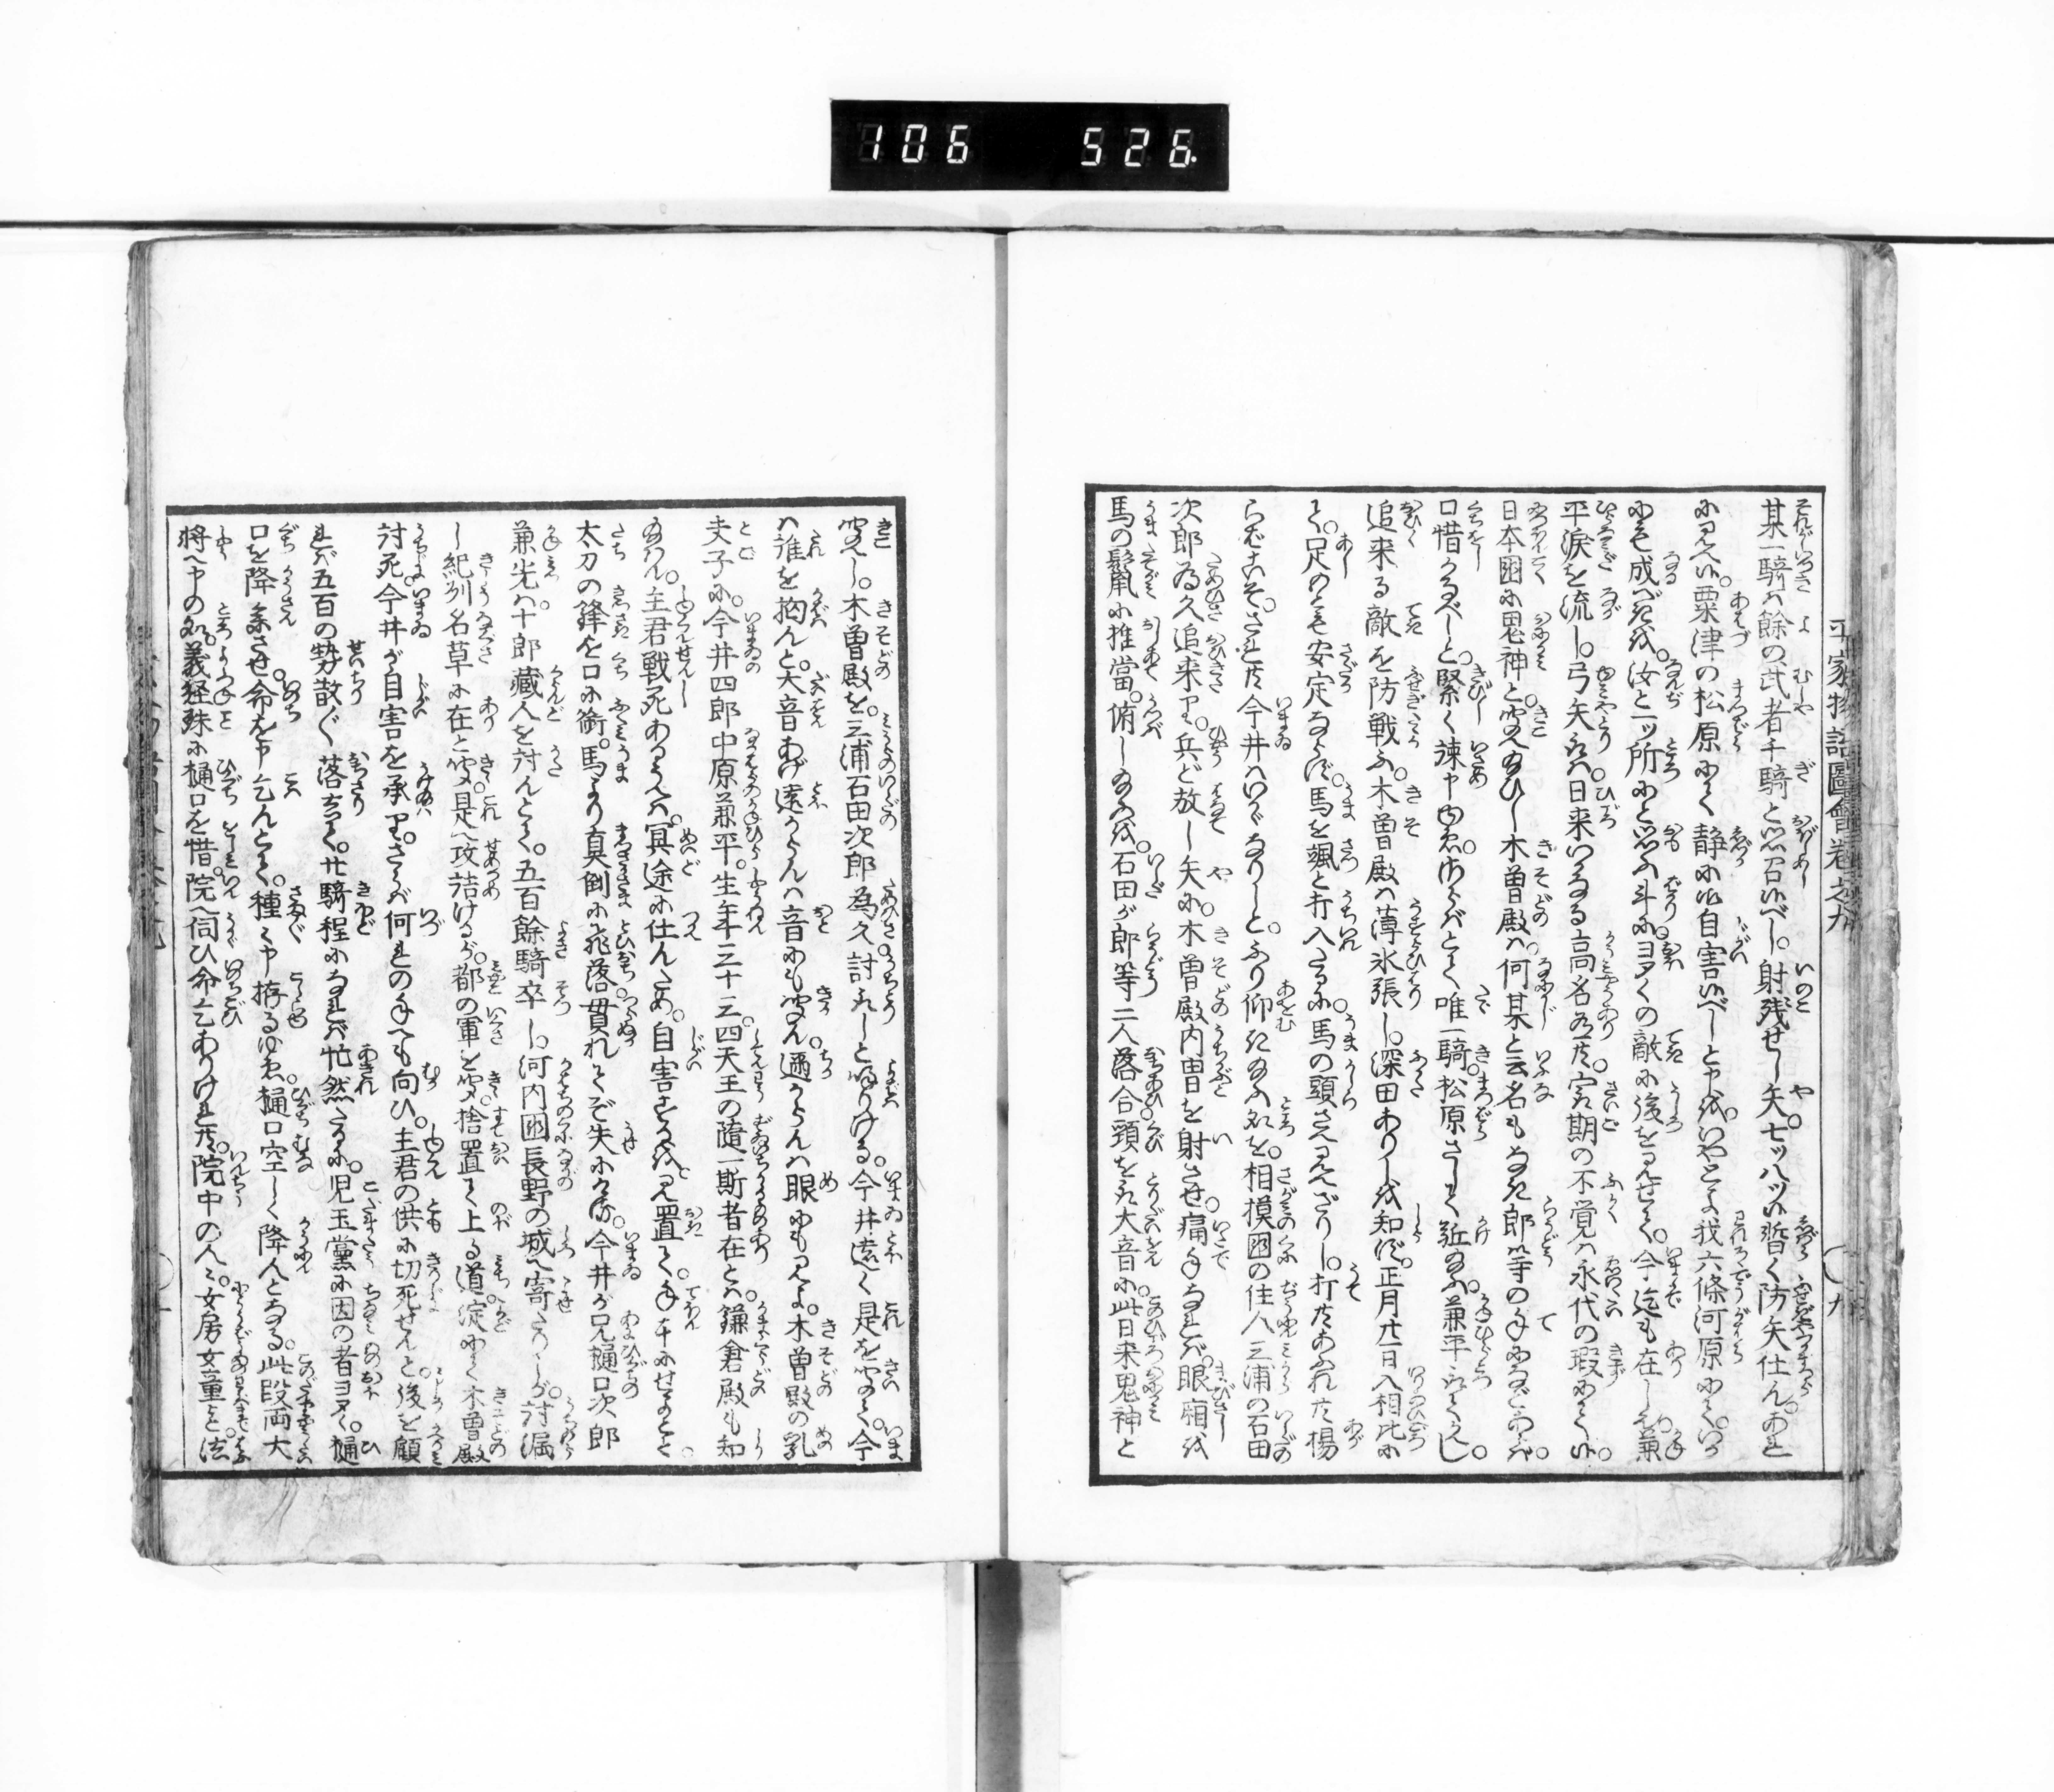 106 526.
平家物語圖會卷之九
某一騎ハ餘の武者千騎と思召候べし。射残せし矢。七ツ八ツ候暫く防矢仕ん。あれ
に見へ候。粟津の松原にて静に御自害候べしと申せば。いやとよ我六條河原にて。いか
にも成べきを。汝と一ツ所にと思ふ斗に。ヨタくの敵に後を見せて。今迄も在しぞ。兼
平涙を流し。弓矢取ハ日来いかなる高名候共。㝡期の不覚ハ永代の瑕にて候。
日本国に鬼神と聞へ給ひし木曽殿ハ。何某と云名もなき郎等の手になど
口惜かるべしと。緊く諫申ゆゑ。さらばとて唯一騎。松原さして趍給ふ。兼平
追来る敵を防戦ふ。木曽殿ハ薄氷張し。深田ありしを知ず。正月廿一日入相比に
て。足のも安定ならず。馬を颯と打入たるに。馬の頭さへ見へざりし。打共あふれ共揚
らばこそ。され共今井ハいかゞなりしと。ふり仰き給ふ所を。相摸国の住人三浦の石田
次郎為久追来り。兵ど放し矢に。木曽殿内冑を射させ。痛手なれば。眼廂を
馬の鬣に推當。俯し給ふを。石田が郎等二人落合頸を取大音に。此日来鬼神と
聞へし。木曽殿を。三浦石田次郎為久討取しと呼りける。今井遠く是をきゝて。今
ハ誰を拘んと。大音あげ遠からんハ音にも聞ん。邇からんハ眼にも見よ。木曽殿の乳
夫子に。今井四郎中原兼平。生年三十三。四天王の隨一斯者在とハ。鎌倉殿も知
給ハん。主君戦死あるうへハ。冥途に仕んため。自害するを見置て。手本にせよとて
太刀の鋒を口に銜。馬より真倒に飛落貫れてぞ失にける。今井が兄樋口次郎
兼光ハ。十郎藏人を討んとて。五百餘騎卒し。河内国長野の城へ寄たりしが。討漏
し紀刕名草に在と聞。是へ攻詰けるが。都の軍と聞。捨置て上る道。淀にて木曽殿
討死。今井が自害を承り。さらば何れの手へも向ひ。主君の供に切死せんと。後を顧
れバ五百の勢散〴〵落ちて。廿騎程になれバ。忙然たるに。児玉黨に因の者ヨタく。樋
口を降参させ。命を申乞んとて。種〻申拵るゆゑ。樋口空しく降人となる。此段両大
将へ申の処。義経殊に樋口を惜。院へ伺ひ命乞ありけれ共。院中の人〻。女房女童と。法